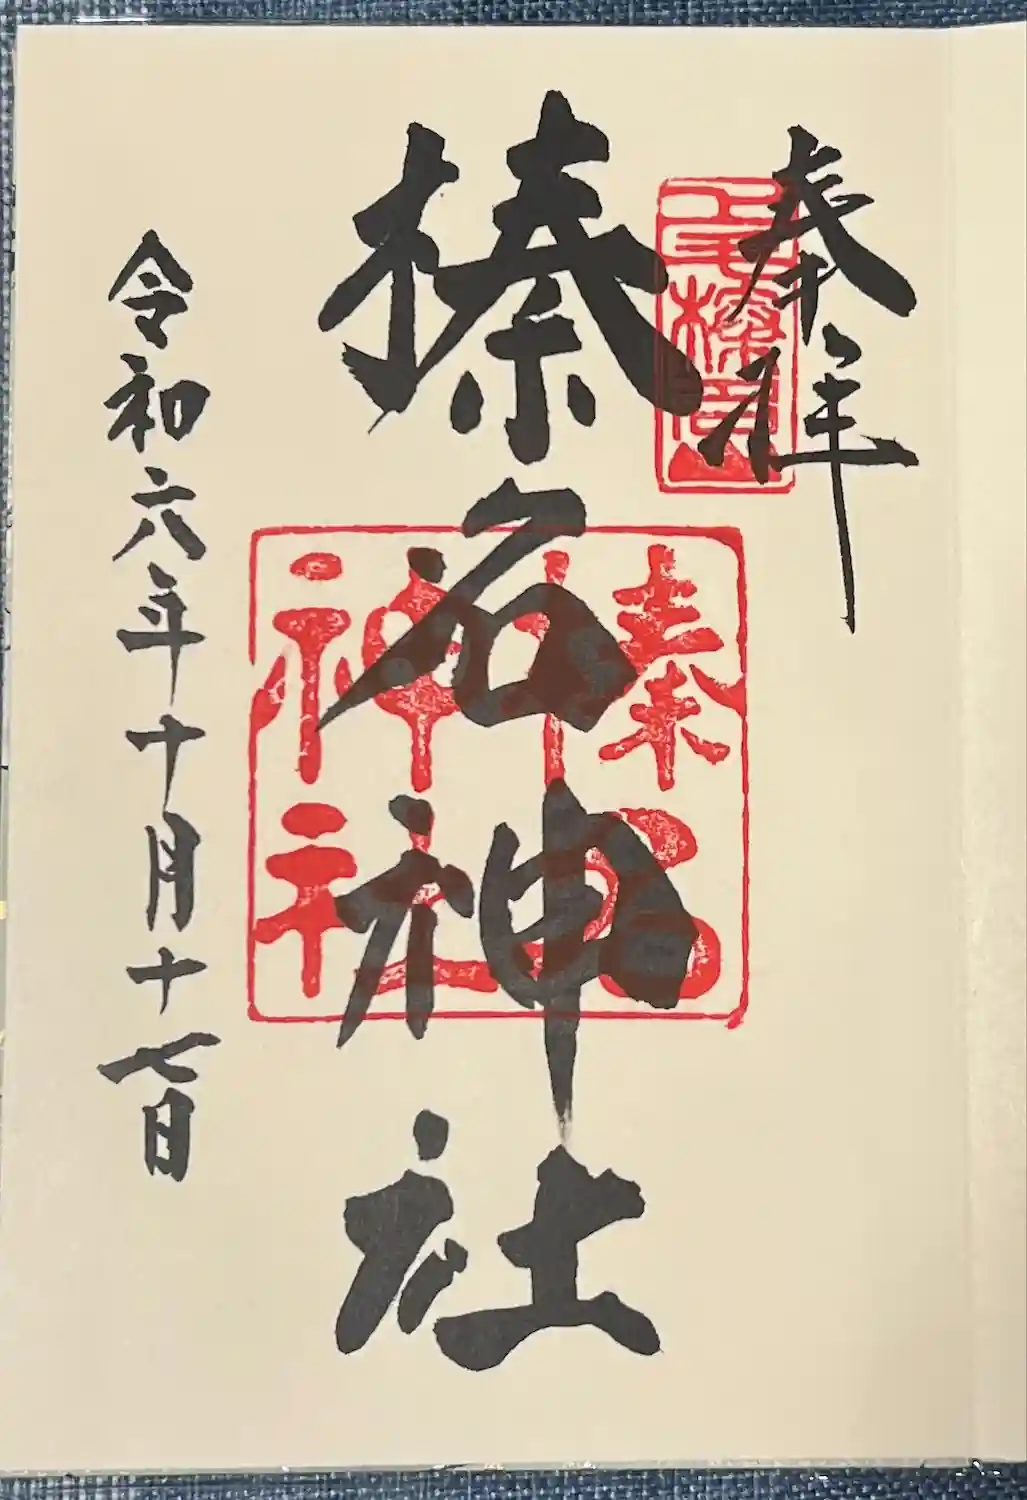 奉拝
榛名神社
榛名神社
令和六年十月十七日